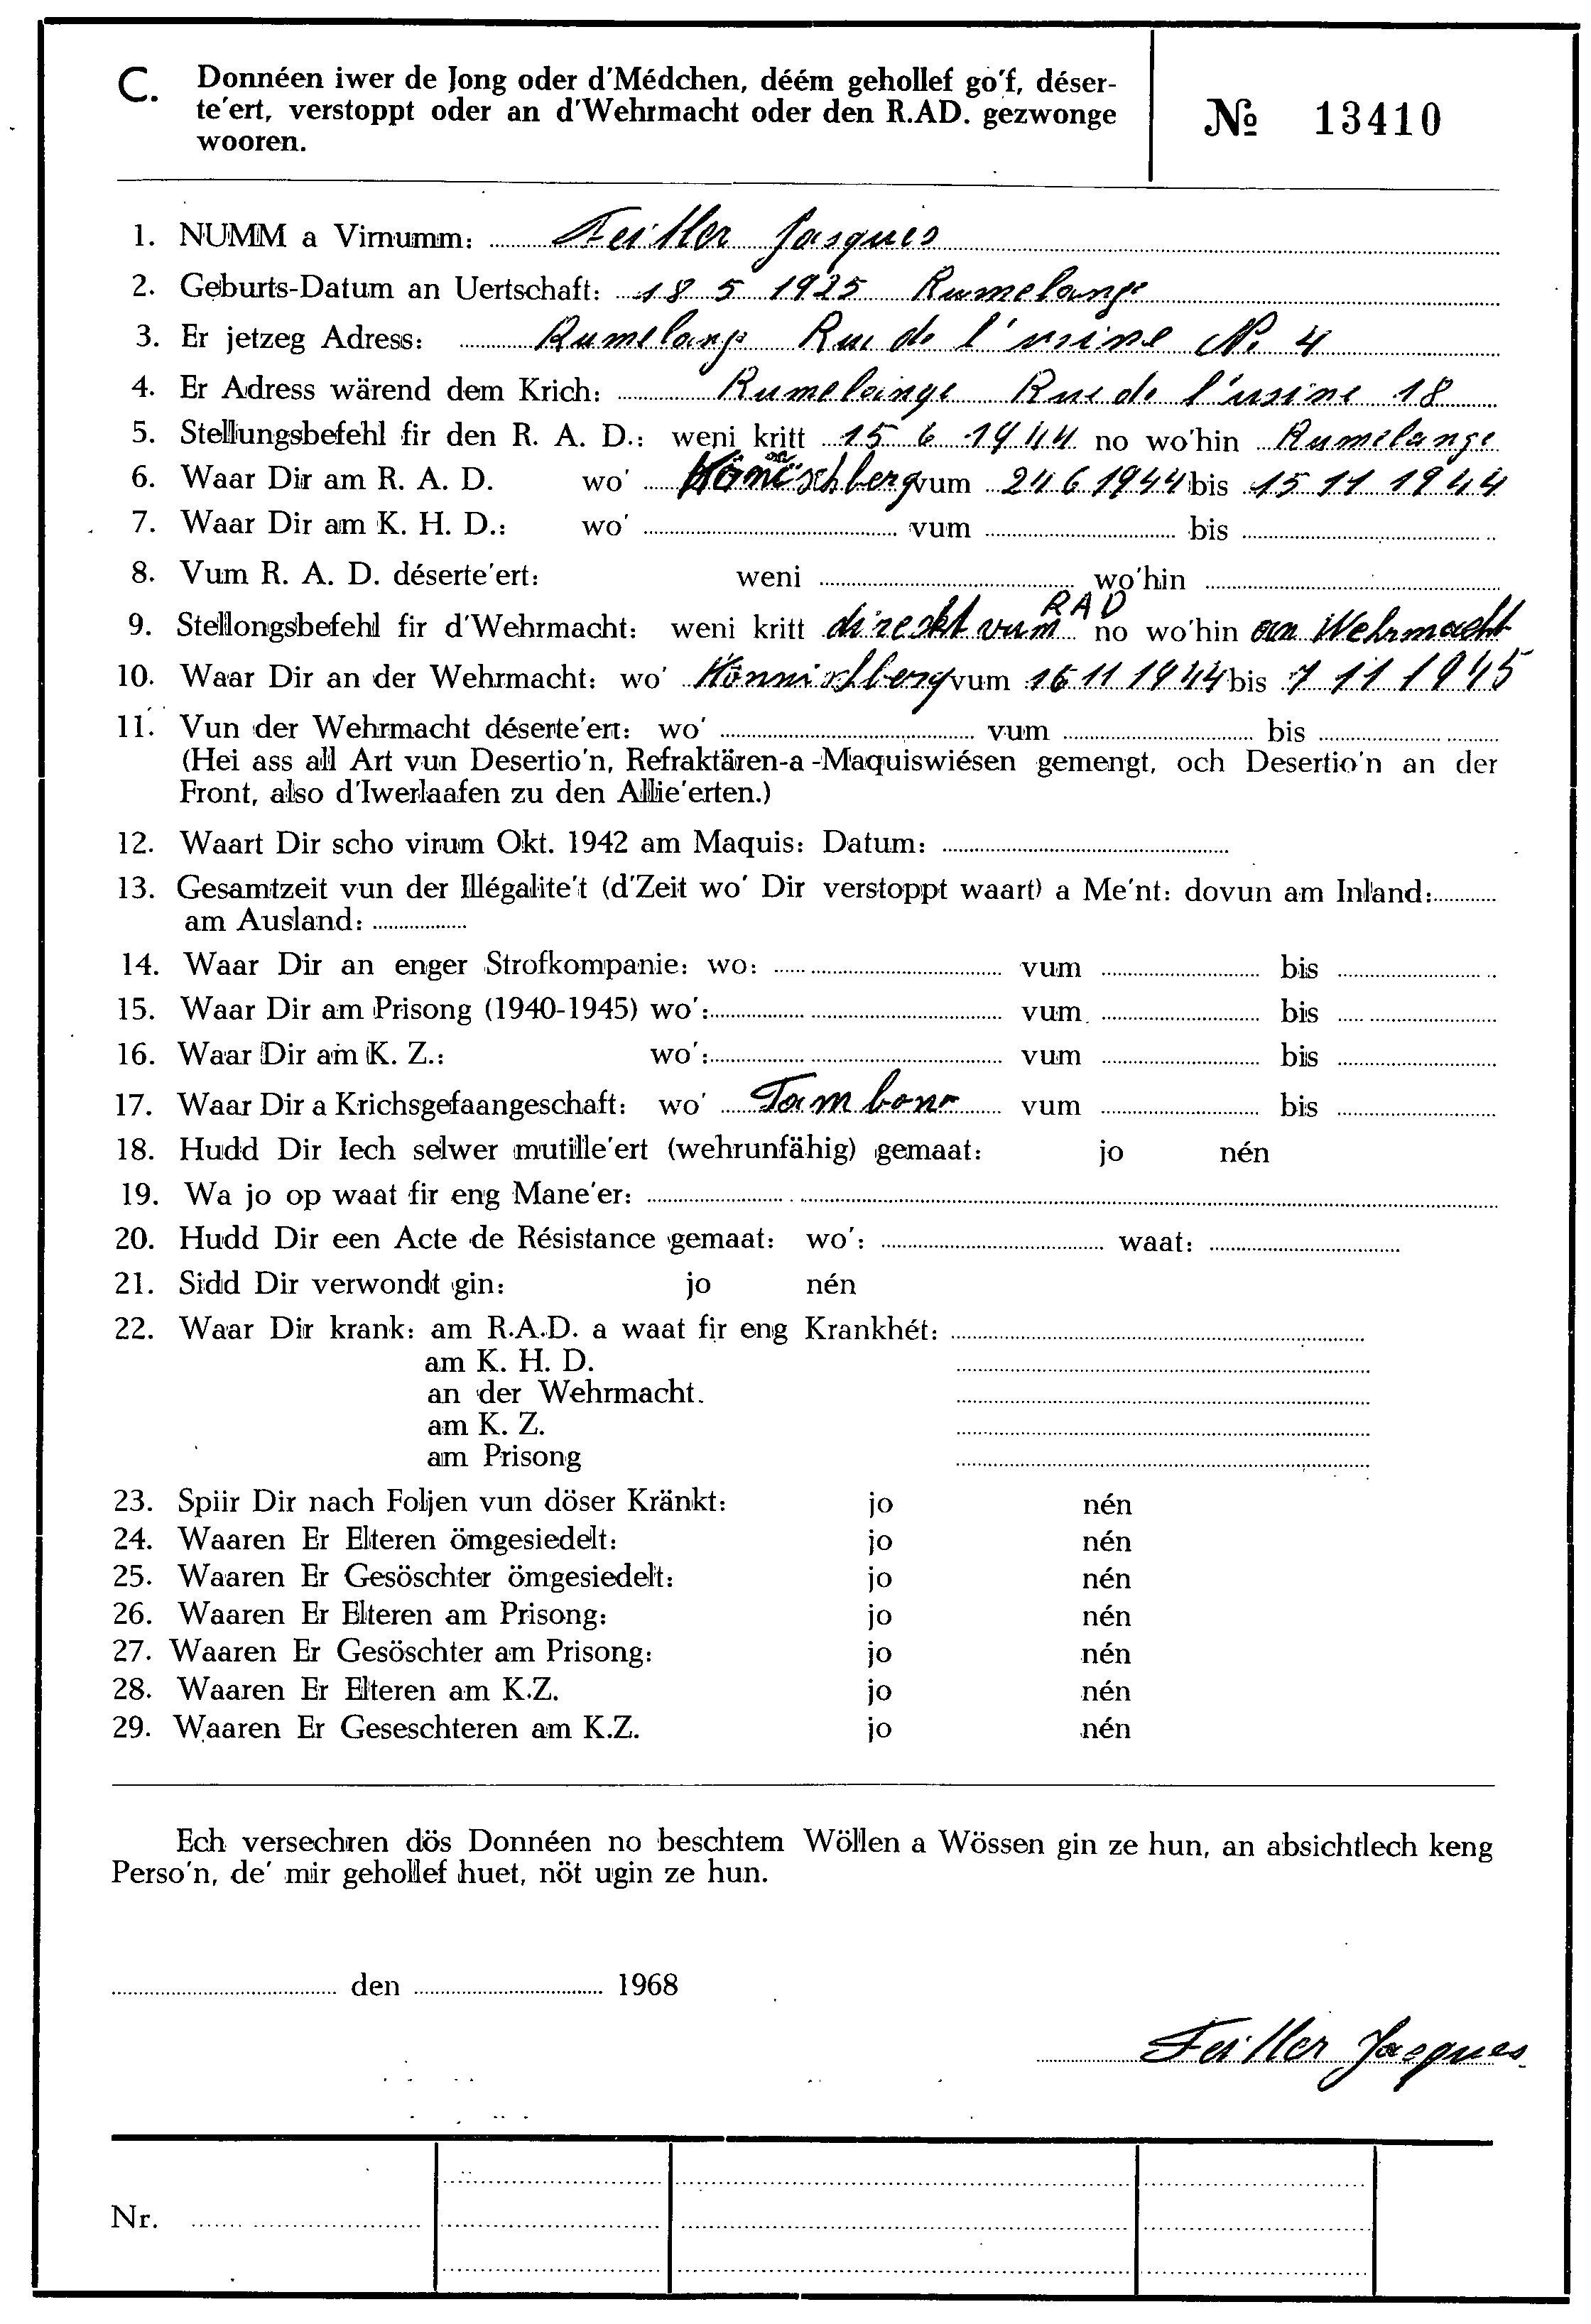 C. Donnéen iwer de Jong oder d'Médchen, déém gehollef go'f, déser-
te'ert, verstoppt oder an d'Wehrmacht oder den R.AD. gezwonge
wooren.
№ 13410
1. NUMM a Virnumm: Feitler Jasques
2. Geburts-Datum an Uertschaft: 18 5 1925 Rumelange
3. Er jetzeg Adress: Rumelange Rue de l'usine No 4
4. Er Adress wärend dem Krich: Rumelange Rue de l'usine 18
5. Stellungsbefehl fir den R. A. D.: weni kritt 15 6 1944 no wo'hin Rumelange
6. Waar Dir am R. A. D. wo' vum 24 6 1944 bis 15 11 1944
7. Waar Dir am K. H. D.: wo' vum bis
8. Vum R. A. D. déserte'ert: weni wo'hin
9. Stellongsbefehl fir d'Wehrmacht: weni kritt direckt vum RAD no wo'hin an Wehrmacht
10. Waar Dir an der Wehrmacht: wo' Könnischberg vum 16 11 1944 bis 7 11 1945
11. Vun der Wehrmacht déserte'ert: wo' vum bis
(Hei ass all Art vun Desertio'n, Refraktären-a-Maquiswiésen gemengt, och Desertio'n an der
Front, also d'Iwerlaafen zu den Allie'erten.)
12. Waart Dir scho virum Okt. 1942 am Maquis: Datum:
13. Gesamtzeit vun der Illégalite't (d'Zeit wo' Dir verstoppt waart) a Me'nt: dovun am Inland:
am Ausland:
14. Waar Dir an enger Strofkompanie: wo: vum bis
15. Waar Dir am Prisong (1940-1945) wo': vum bis
16. Waar Dir am K. Z.: wo': vum bis
17. Waar Dir a Krichsgefaangeschaft: wo' Tambour vum bis
18. Hudd Dir Iech selwer mutille'ert (wehrunfähig) gemaat: jo nén
19. Wa jo op waat fir eng Mane'er:
20. Hudd Dir een Acte de Résistance gemaat: wo': waat:
21. Sidd Dir verwondt gin: jo nén
22. Waar Dir krank: am R.A.D. a waat fir eng Krankhét:
am K. H. D.
an der Wehrmacht.
am K. Z.
am Prisong
23. Spiir Dir nach Foljen vun döser Kränkt: jo nén
24. Waaren Er Elteren ömgesiedelt: jo nén
25. Waaren Er Gesöschter ömgesiedelt: jo nén
26. Waaren Er Elteren am Prisong: jo nén
27. Waaren Er Gesöschter am Prisong: jo nén
28. Waaren Er Elteren am K.Z. jo nén
29. Waaren Er Geseschteren am K.Z. jo nén
Ech versechren dös Donnéen no beschtem Wöllen a Wössen gin ze hun, an absichtlech keng
Perso'n, de' mir gehollef huet, nöt ugin ze hun.
den 1968
Feitler Jacques
Nr.